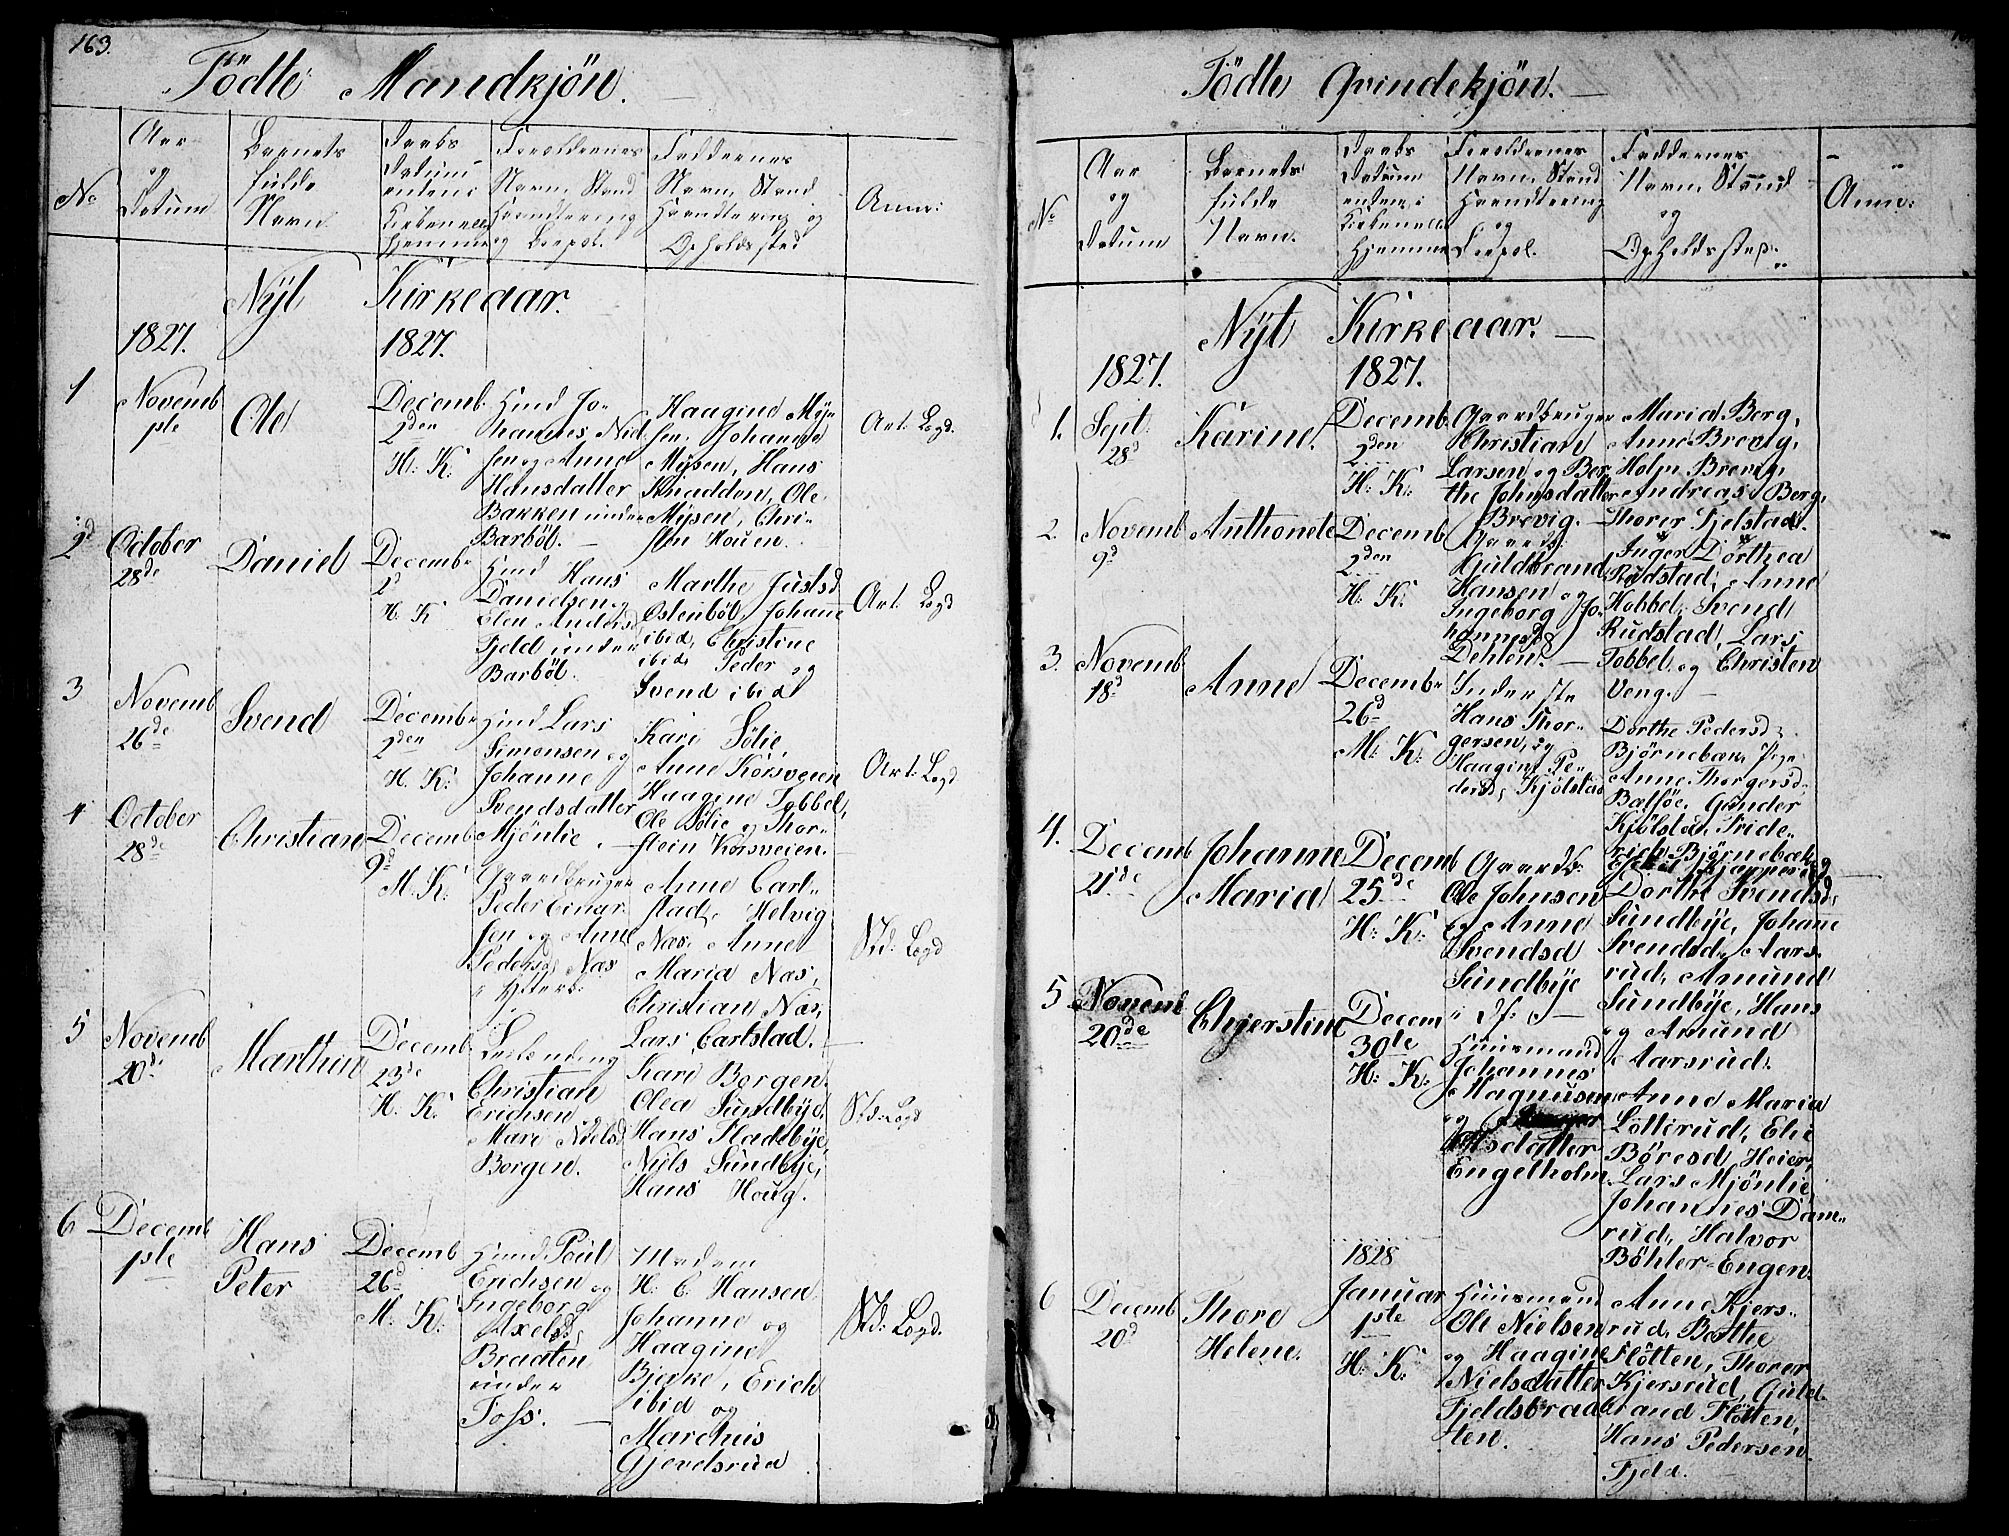 163.
Födte Mandkjön.
No
Aar
og
Datum
Barnets
fulde
Navn.
Daabs
Datum
enten i
Kirken eller
Hjemme
Foreldrenes
Navn, Stand
Haandtering
og Boepel.
Faddernes
Navn, Stand
Haandtering og
Opholdssted
Anm:
Nÿt Kirkeaar.
1827. 1827.
1
Novemb
1ste
Ole
Decemb.
2den
H: K:
Huusmd Jo-
hannes Nid-
sen og Anne
Hansdatter
Bakken under
Barböl. —
Haagine Mÿ-
sen, Johanne
Mÿsen, Hans
Knaddon, Ole
Mÿsen, Chri-
sten Houen.
Art: Logd.
2d
October
28de
Daniel
Decemb.
2d
H: K
Huusmd Hans
Danielsen og
Elen Andersd
Fjeld under
Barböl.
Marthe Justsd
Ostenböl, Johane
ibid, Christine
ibid, Peder og
Svend ibid
Art: Logd
3
Novemb
26de
Svend
Decemb.
2den
H. K:
Huusmd Lars
Simonsen og
Johanne
Svendsdatter
Mjönlie. —
Kari Sölie,
Anne Korsveien
Haagine Tobbel,
Ole Sölie og Thor-
stein Korsveien.
Art: Logd
4
October
28de
Christian
Decemb
9d
M. K:
Gaardbruger
Peder Einar-
sen og Anne
Pedersd, Næs
i Hitterd:
Anne Carl-
stad, Helvig
Næs. Anne
Maria Næs,
Christian Næs,
Lars Carlstad.
Std: Logd
5
Novemb
20d
Marthin
Decemb
23de
H. K:
Christian
Erichsen og
Mari Nielsd
Borgen.
Kari Borgen
Olea Sundbÿe,
Hans Fladebÿe,
Niels Sundbÿe,
Hans Houg.
Std: Logd
6
Decemb
1ste
Hans
Peter
Decemb
26d
M. K:
Huusmd Poul
Erichsen og
Ingeborg
Axelsd
Braaten
under
Foss. —
Madam
H. C. Hansen
Johanne og
Haagine
Bjerke, Erich
ibid og
Marchus
Gjevelsrud
Std: Logd.
Födte Qvindekjön. —
No
Aar
og
Datum
Barnets
fulde
Navn.
Daabs
Datum
enten i
Kirken eller
Hjemme
Foreldrenes
Navn, Stand
Haandtering
og
Boepel.
Faddernes
Navn, Stand
og
Opholdssted.
Anm:
Nÿt Kirkeaar. —
1827. 1827.
1.
Sept:
28d
Karine.
Decemb
2den
H: K:
Gaardbruger
Christian
Larsen og Ber-
the Johnsdatter
Brevig. —
Maria Berg,
Anne Brevig,
Holm Brevig,
Andreas Berg,
Thorer Fjelstad.
2.
Novemb
9d
Anthonete
Decemb
2den
H: K:
Gaardb:
Guldbrand
Hansen og
Ingeborg Jo-
hannesd
Dehlen. —
Inger Dorthea
Rudstad, Anne
Hobbel, Svend
Rudstad, Lars
Tobbel og Christen
Veng. —
3.
Novemb
18d
Anne
Decemb
26d
M: K:
Inderste
Hans Thor-
gersen, og
Haagine Pe-
dersd, Kjölstad
Dorthe Pedersd
Björnebæk Pige
Anne Thorgersd,
Gunder
Kjölstad, Fride-
rich Björnebæk og
4.
Decemb
21de
Johanne
Maria
Decemb
25de
H: K:
Gaardb:
Ole Johnsen
og Anne
Svendsd
Sundbÿe
Dorthe Svendsd
Sundbÿe, Johane
Svendsd, Aars-
rud, Amund
Sundbÿe, Hans
og Amund
Aarsrud.
5
Novem
20de
Chjerstine
Decem
30te
H: K:
Huusmand
Johannes
Magnusen
og
Engelholm
Anne Maria
Lötterud, Elie
Böresd Heier,
Lars Mjönlie
Johannes Dam-
rud, Halvor
Böhler-Engen.
6
Decemb
20d
Thore
Helene.
1828
Januar
1ste
H: K:
Huusmand
Ole Nielsen
og Haagine
Nielsdatter
Fjeldsbraa-
ten.
Anne Kjers-
rud, Berthe
Flötten, Thorer
Kjersrud, Guld-
brand Flötten,
Hans Pedersen
Fjeld. —